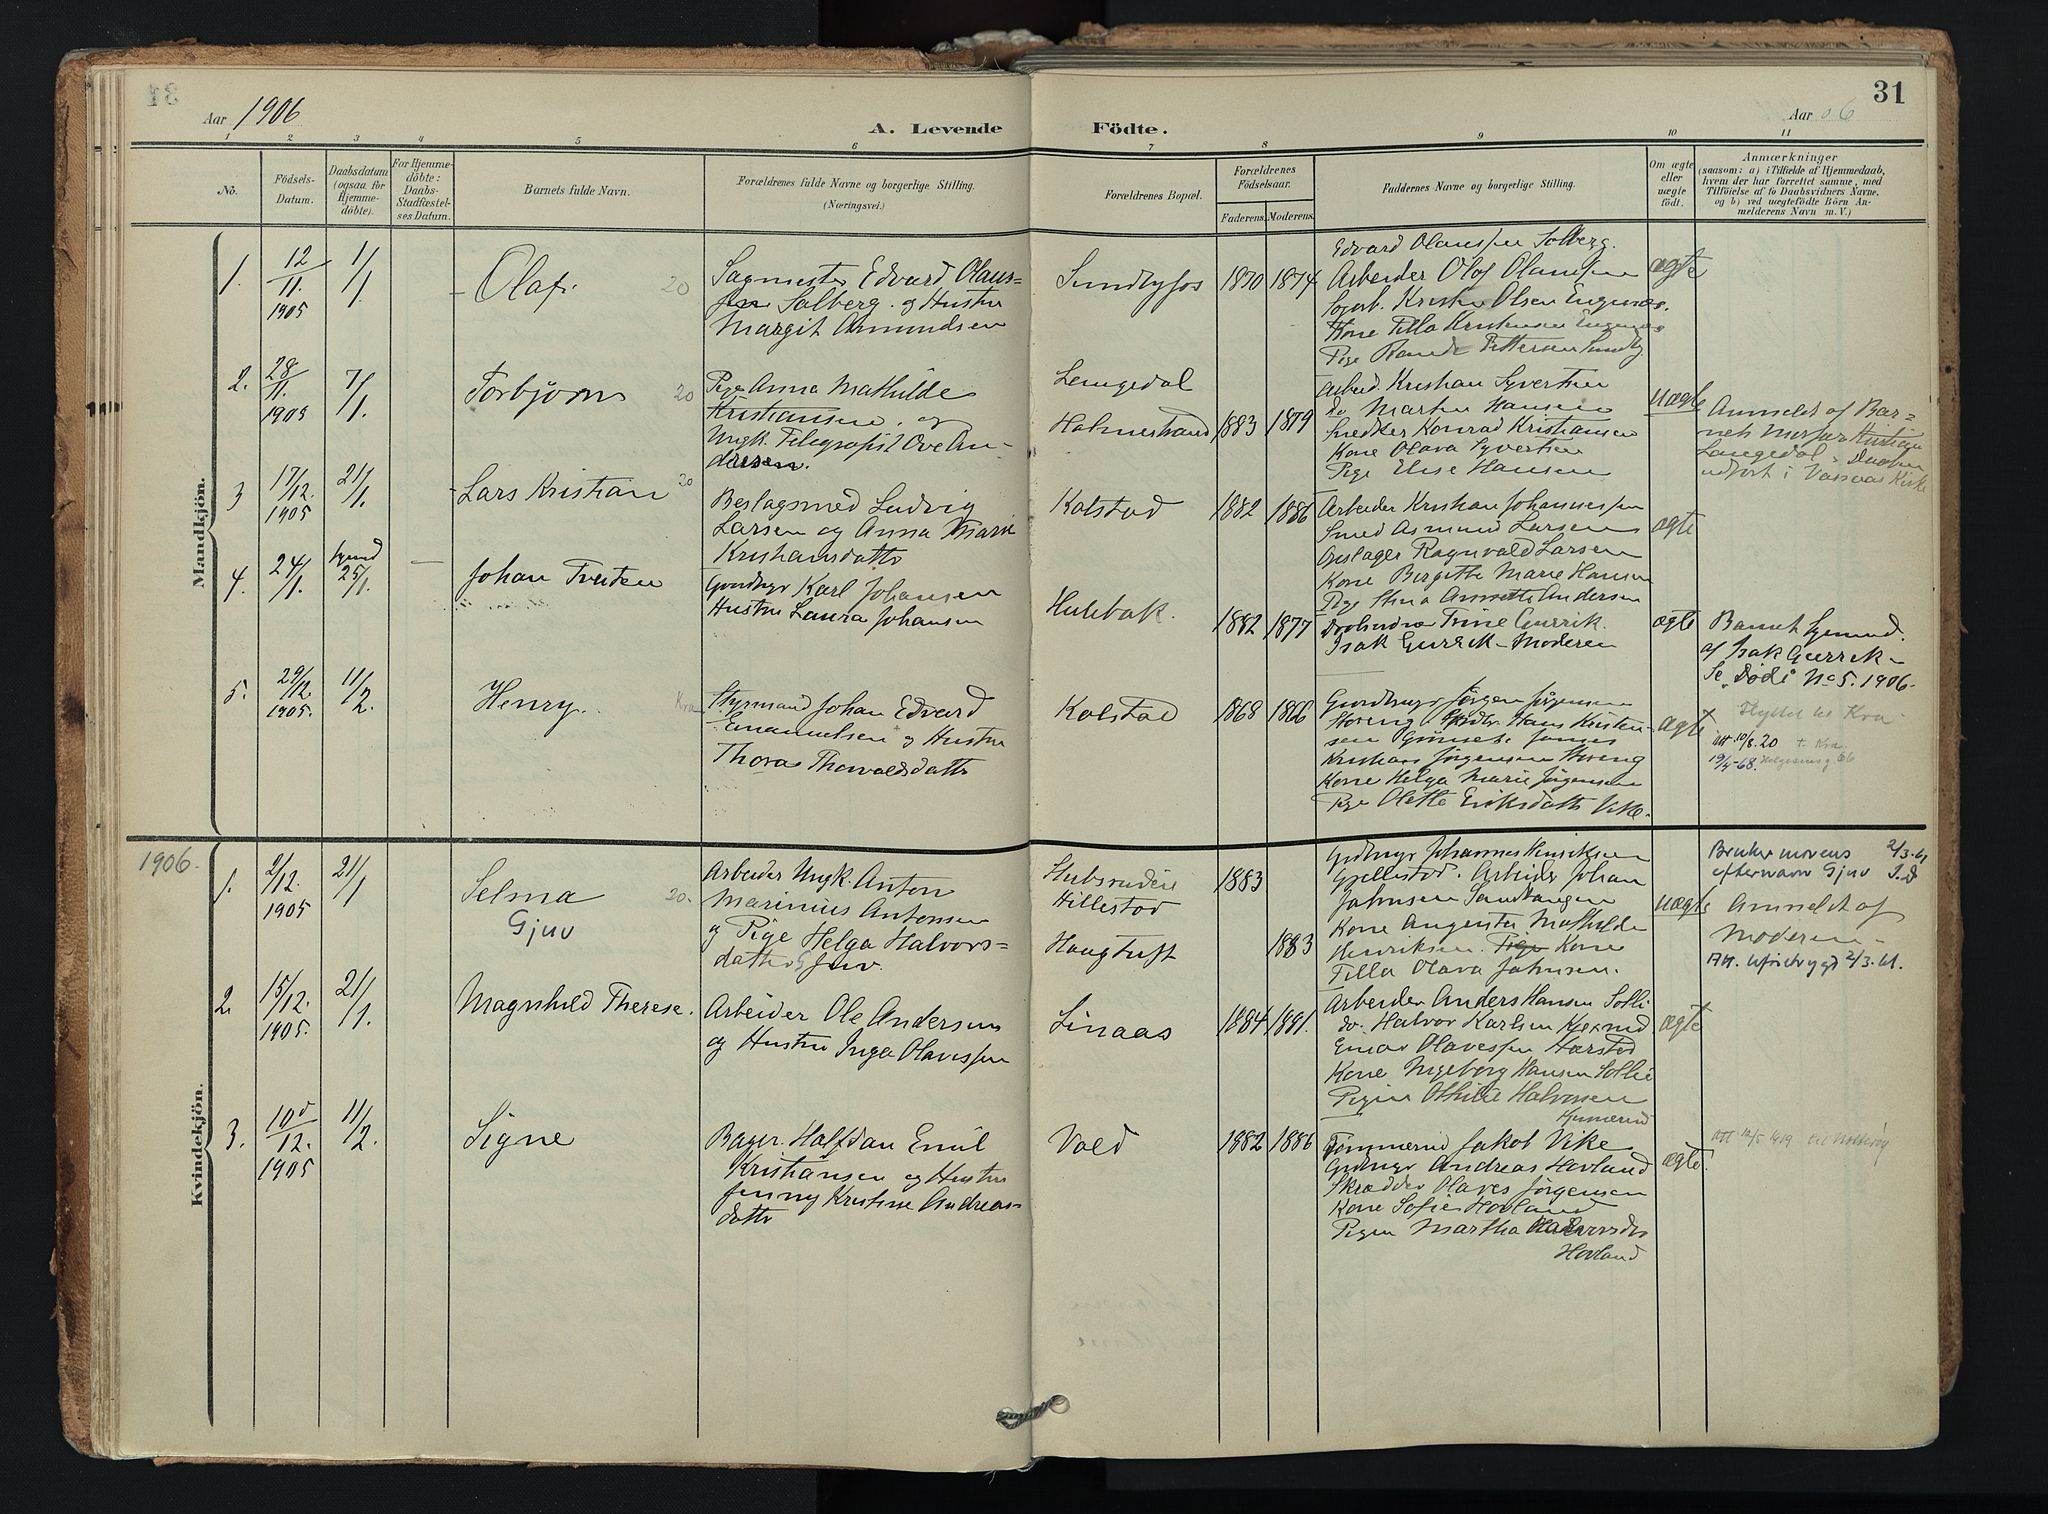 31
Aar 1906
A. Levende Födte.
Aar 06
1 2 3 4 5 6 7 8 9 10 11
No.
Födsels-Datum.
Daabsdatum (ogsaa for Hjemmedöbte).
For Hjemmedöbte: Daabs-Stadfæstelses Datum.
Barnets fulde Navn.
Forældrenes fulde Navne og borgerlige Stilling.
(Næringsvei.)
Forældrenes Bopæl.
Forældrenes Födselsaar.
Faderens. Moderens.
Faddernes Navne og borgerlige Stilling.
Om ægte eller uægte födt.
Anmærkninger
(saasom: a) i Tilfælde af Hjemmedaab, hvem der har forrettet samme, med Tilföielse af to Daabsvidners Navne, og b) ved uægtefödte Börn Anmelderens Navn m. V.)
Mandkjön.
1. 12/11. 1905 1/1 Olaf. 20
Sagmester Edvard Olaus-
sen Solberg. og Hustru
Margit Amundsen
Sundbyfos 1870 1874
Edvard Olaussen Solberg.
Arbeider Olof Olaussen
Kristen Olsen Engenæs.
Kone Tilla Kristensen Engenæs
Pige Pettersen Sundby
ægte
2. 28/11. 1905 7/1. Torbjørn 20
Pige Anna Mathilde
Kristiansen. og
Ungk. Telegrafist Ove An-
dersen.
Langedal
Holmestrand 1883 1879
Arbeid. Kristian Syvertsen
do Martin Hansen
Snedker Konrad Kristiansen
Kone Olava Syvertsen
Pige Elise Hansen
uægte
Anmeldt af Bar-
nets Morfar Kristian
Langedal. Daaben
udført i Vassaas Kirke
3 17/12. 1905 21/1. Lars Kristian 20
Beslagsmed Ludvig
Larsen og Anna Marie
Kristiansdatter
Kolstad 1882 1886
Arbeider Kristian Johannessen
Smed Asmund Larsen
Opslager Ragnvald Larsen
Kone Birgitte Marie Hansen
Pige Stina Annette Andersen
ægte
4. 24/1. hjemd 25/1. — Johan Tveiten
Gaardbrgr Karl Johansen
Hustru Laura Johansen
Hulebak. 1882 1877
Trine Gurrik.
Isak Gurrik - Moderen
ægte
Barnet hjemmed.
af Isak Gurrik -
Se "Døde" No 5. 1906.
5. 29/12. 1905. 11/2. Henry. Kra
Styrmand Johan Edvard
Emanuelsen og Hustru
Thora Thorvaldsdatter
Kolstad 1868 1866
Gaardbrgr Jørgen Jørgensen
Hans Kristen-
sen
Kristians Jørgensen
Kone Helga Marie Jørgensen
Pige Olette Eriksdatter Vike.
ægte
Flyttet til Kra
Att 10/8. 20 + Kra
19/4-68. Helgesensg 66
Kvindekjön.
1906.
1. 2/12. 1905 21/1 Selma 20.
Gjuv
Arbeider Ungk. Anton
Marinius Antonsen
og Pige Helga Halvors-
datter Gjuv.
Hillestad 1883
Haugtuft 1883
Grdbrgr Johannes Henriksen
Gjellestad. Arbeider Johan
Johnsen Sandtangen
Kone Augusta Mathilde
Henriksen. Pige Kone
Tilla Olava Johnsen.
uægte
Bruker morens 2/3.61
efternavn Gjuv
Anmeldt af
Moderen -
Att. uføretrygd 2/3.61.
2. 15/12. 1905. 21/1. Magnhild Therese.
Arbeider Ole Andersen
og Hustru Inga Olavessen
Linaas 1884 1881.
Arbeider Anders Hansen Solli
do. Halvor Karlsen
Einar Olavessen Harstad
Kone Ingeborg Hansen Solli
Pigen Othilie Halvorsen
ægte
3. 10/12. 1905 11/2. Signe
Bager. Halfdan Emil
Kristiansen og Hustru
Jenny Kristine Andreas-
datter
Vold 1882 1886
Tømmermd Jakob Vike
Grdbrgr Andreas Hovland
Skrædder Olaves Jørgensen
Kone Sofie Hovland
Pigen Martha
Hovland
ægte.
Att 12/5 1919